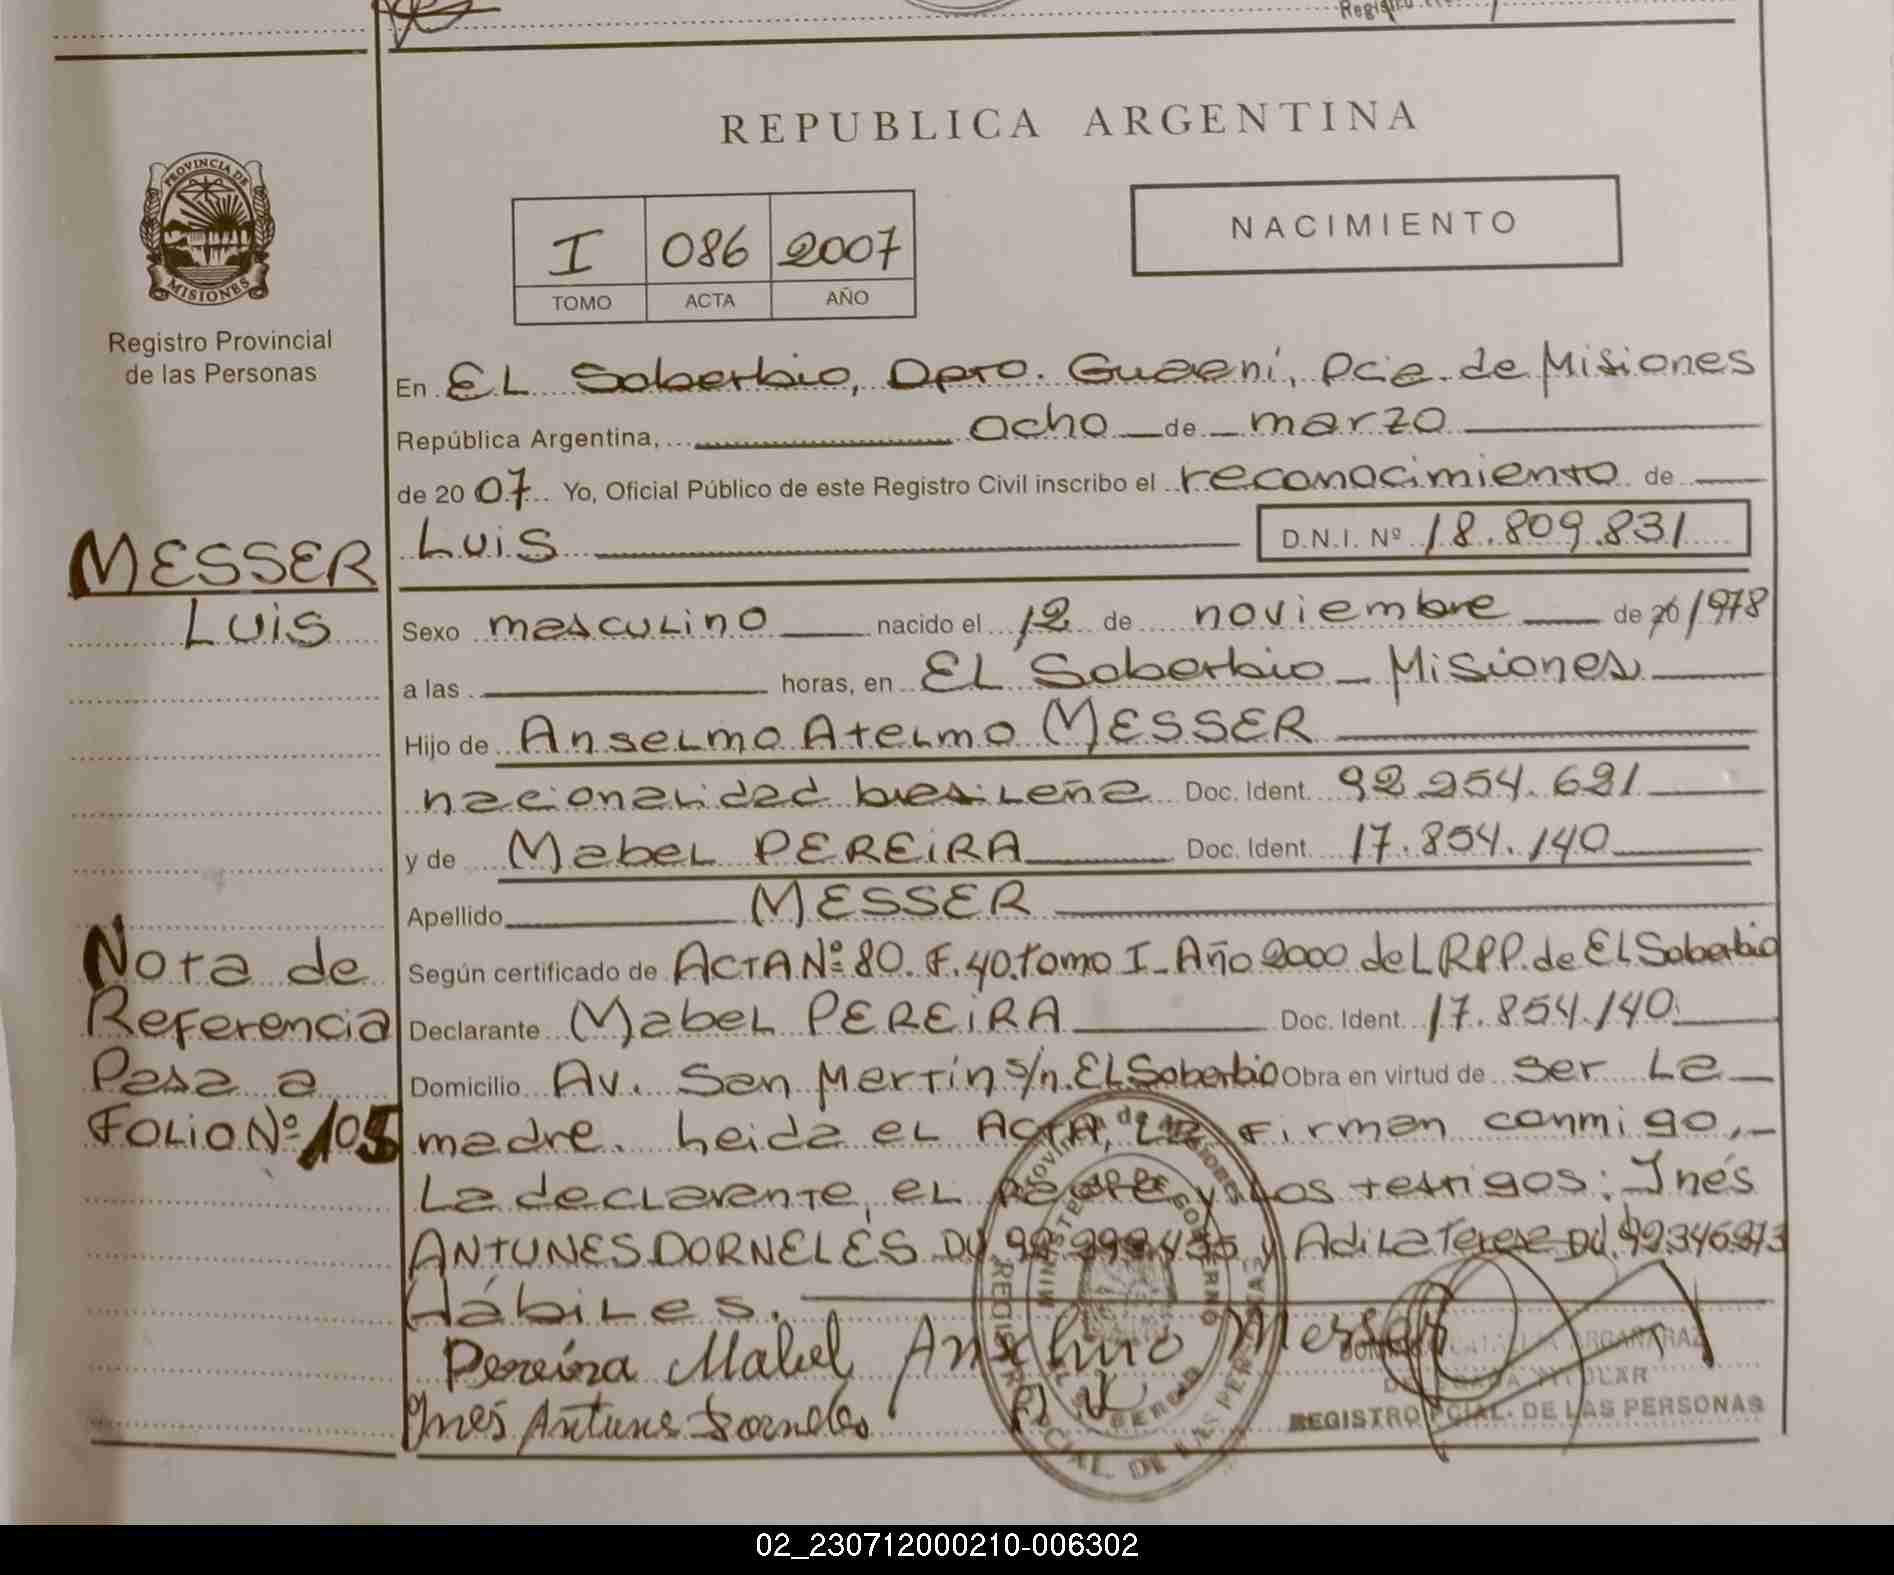 REPUBLICA ARGENTINA
PROVINCIA DE MISIONES
Registro Provincial
de las Personas
I 086 2007
TOMO ACTA AÑO
NACIMIENTO
En EL Soberbio, Dpto. Guaraní, Pcia. de Misiones
República Argentina, ocho de marzo
de 20 07 Yo, Oficial Público de este Registro Civil inscribo el reconocimiento de
MESSER
Luis
Luis D.N.I. Nº 18.809.831
Sexo masculino nacido el 12 de noviembre de 1978
a las horas, en EL Soberbio - Misiones
Hijo de Anselmo Atelmo MESSER
nacionalidad brasileña Doc. Ident. 92.254.621
y de Mabel PEREIRA Doc. Ident. 17.854.140
Apellido MESSER
Nota de
Referencia
Pasa a
Folio Nº 105
Según certificado de ACTA Nº 80. F. 40. tomo I - Año 2000 del RPP. de EL Soberbio
Declarante Mabel PEREIRA Doc. Ident. 17.854.140
Domicilio Av. San Martín s/n. EL Soberbio Obra en virtud de ser La
madre. Leida el ACTA, La firman conmigo,
La declarante, el padre y Los testigos: Inés
ANTUNES DORNELES DU y Adila Terese DU
Hábiles.
Pereira Mabel Anselmo Messer
Inés Antunes Dorneles
Provincia de Misiones
MINISTERIO DE GOBIERNO
EL SOBERBIO
REGISTRO PCIAL. DE LAS PERSONAS
TITULAR
REGISTRO PCIAL. DE LAS PERSONAS
02_230712000210-006302